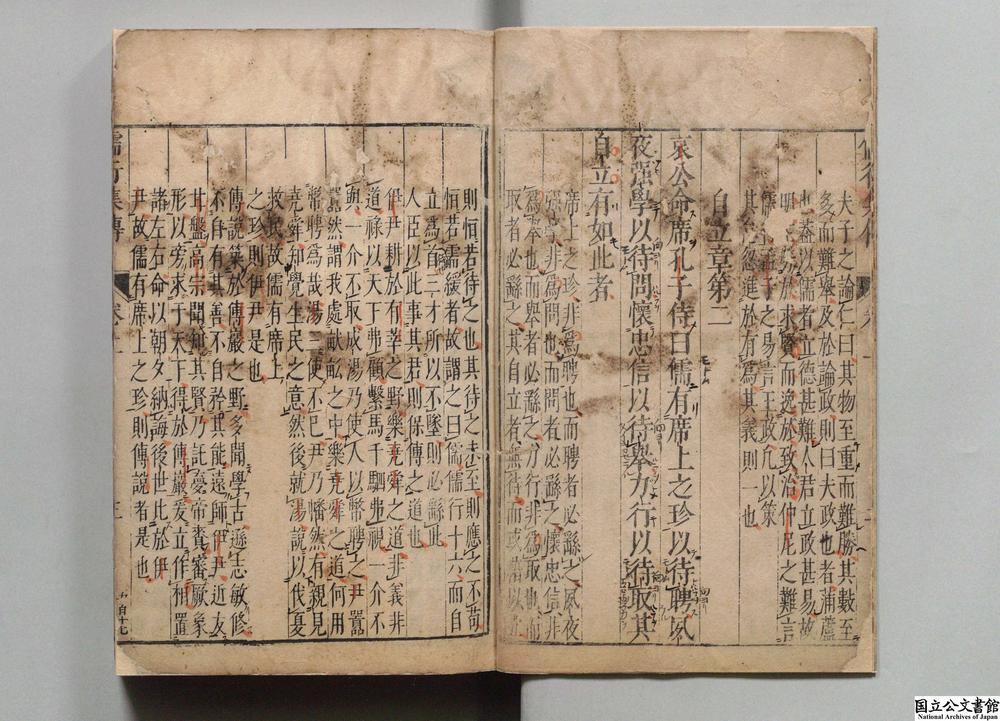 夫子之論仁曰其物至重而難勝其數至
多而難舉及於論政則曰夫政也者蒲蘆
也蓋以儒者立德甚難人君立政甚易故
明 於求賢而逸於致治仲尼之難言
儒 子之易言王政凡以策
其 忽進於有為其義則一也
自立章第二
哀公命席孔子侍曰儒有席上之珍以待聘夙
夜強學以待問懷忠信以待舉力行以待取其
自立有如此者
席上之珍非為聘也而聘者必繇之夙夜
強學非為問也而問者必繇之懷忠信非
為舉也而舉者必繇之力行非為取也而
取者必繇之其自立者無待而或藉以
則恒若待之也其待之 至則應之不苟
恒若儒緩者故謂之曰儒儒行十六而自
立為首二才所以不墜則必繇此
人臣以此事其君則保傅之道也
伊尹耕於有莘之野樂堯舜之道非義非
道祿以天下弗顧繫馬千駟弗視一介不
與一介不取成湯乃使人以幣聘之尹囂
囂然謂我處畎畝之中樂堯舜之道何用
幣聘為哉湯三使不已尹乃幡然有親見
堯舜知覺生民之意然後就湯說以伐夏
救民故儒有席上
之珍則伊尹是也
傅說築於傅巖之野多聞學古遜志敏修
不自有其善不自矜其能遠師伊尹近友
甘盤高宗聞知其賢乃託憂帝賚審厥象
形以旁求于天下得於傅巖爰立作相置
諸左右命以朝夕納誨後世比於伊
尹故儒有席上之珍則傅說者是也
儒行集傳
卷上
三
国立公文書館
National Archives of Japan